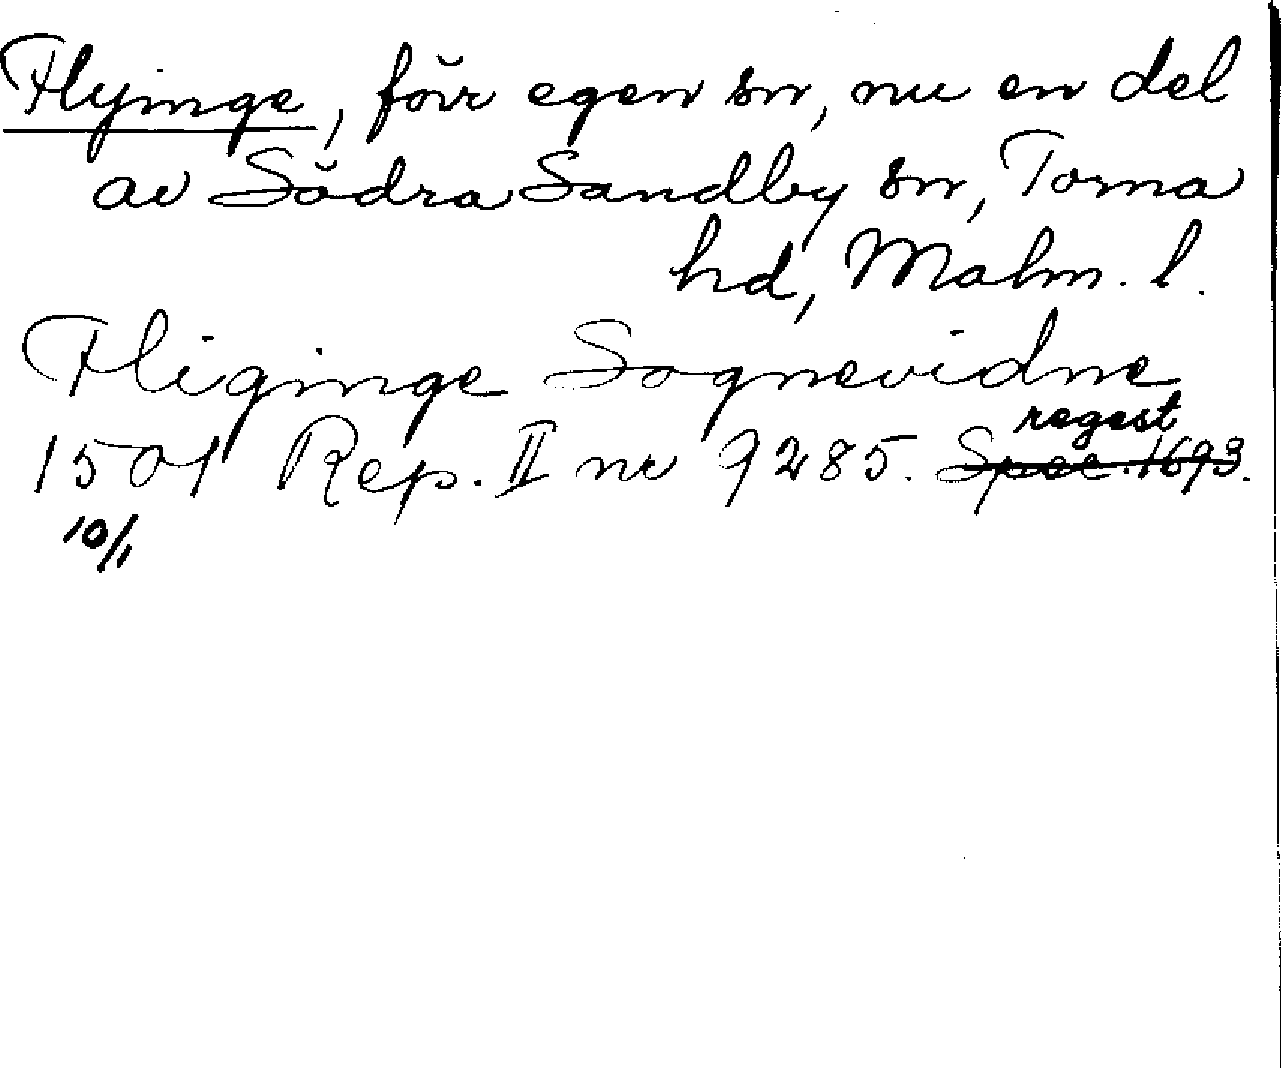 Flyinge, förr egen sn, nu en del
av Södra Sandby sn, Torna
hd, Malm. l.
Fliginge Sognevidne
regest
1501 Rep. II nr 9285. Spec. 1693.
10/1